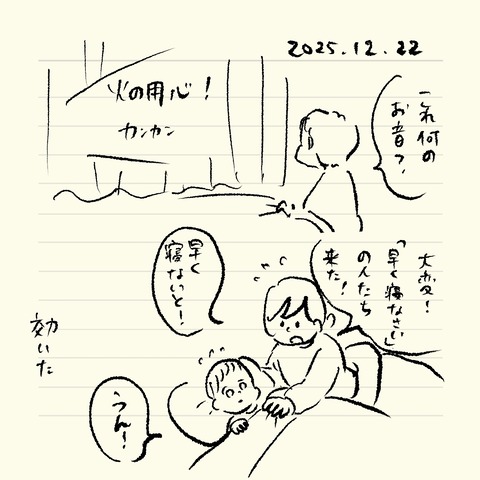 2025.12.22
火の用心！
カンカン
これ何の
お音？
大変！
「早く寝なさい」
の人たち
来た！
早く
寝ないと！
うん！
効いた